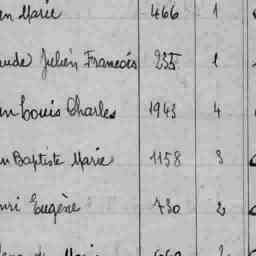 en Marie 466 1
aude Julien Francois 1
n Louis Charles 1943 4
n Baptiste Marie 1158 3
nri Eugène 730 2
Marie 2